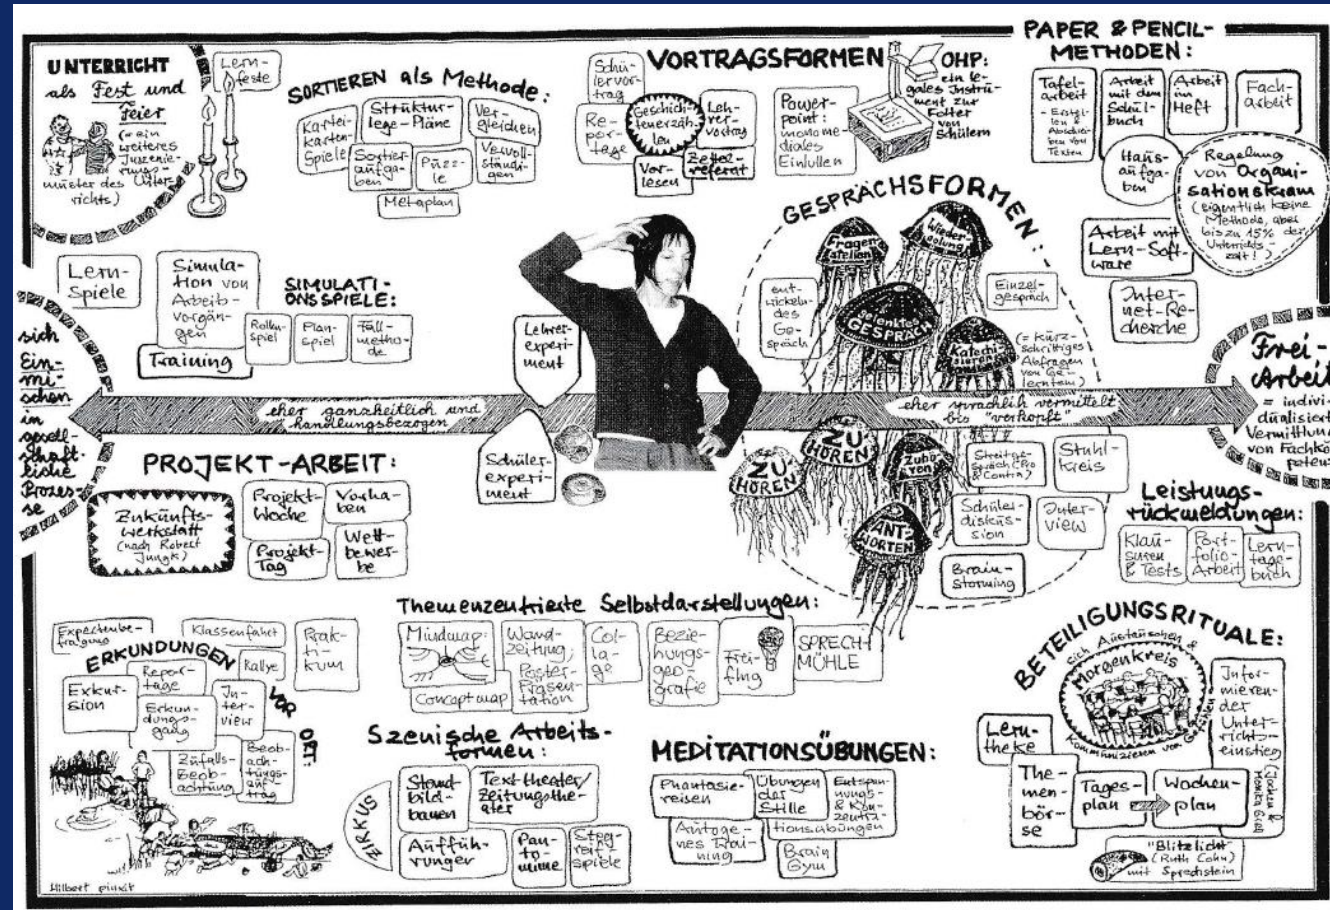 UNTERRICHT
als Fest und
Feier
(= ein
weiteres
Inszenie-
rungs-
muster des Unter-
richts)
Lern-
feste
SORTIEREN als Methode:
Kartei-
karten-
Spiele
Struktur-
lege-Pläne
Ver-
gleichen
Sortier-
aufga-
ben
Puzz-
le
Vervoll-
ständi-
gen
Metaplan
VORTRAGSFORMEN
Schü-
lervor-
trag
Re-
por-
tage
Geschich-
tenerzäh-
len
Leh-
rer-
vortrag
Vor-
lesen
Zettel-
referat
Power-
point:
monome-
diales
Einlullen
OHP:
ein le-
gales Instru-
ment zur
Folter
von
Schülern
PAPER & PENCIL-
METHODEN:
Tafel-
arbeit
- Erstel-
len &
Abschrei-
ben von
Texten
Arbeit
mit dem
Schul-
buch
Arbeit
im
Heft
Fach-
arbeit
Haus-
aufga-
ben
Regelung
von Organi-
sationskram
(eigentlich keine
Methode, aber
bis zu 15% der
Unterrichts-
zeit!)
Arbeit mit
Lern-Soft-
ware
Inter-
net-Re-
cherche
Lern-
Spiele
Simula-
tion von
Arbeits-
vorgän-
gen
Training
SIMULATI-
ONSSPIELE:
Rollen-
spiel
Plan-
spiel
Fall-
metho-
de
Lehrer-
experi-
ment
GESPRÄCHSFORMEN:
Fragen
stellen
Wieder-
holung
ent-
wickeln-
des
Ge-
spräch
gelenktes
GESPRÄCH
Einzel-
gespräch
(= kurz-
schrittiges
Abfragen
von Ge-
lerntem)
sich
Ein-
mi-
schen
in
gesell-
schaft-
liche
Prozes-
se
eher ganzheitlich und
handlungsbezogen
eher sprachlich vermittelt
bis "verkopft"
Frei-
Arbeit
= indivi-
dualisiert
Vermittlun
von Fachko
petenz
PROJEKT-ARBEIT:
Zukunfts-
werkstatt
(nach Robert
Jungk)
Projekt-
Woche
Vorha-
ben
Projekt-
Tag
Wett-
bewer-
be
Schüler-
experi-
ment
ZU
HÖREN
ZU
HÖREN
Zuhö-
ren
ANT-
WORTEN
Streitge-
spräch (Pro
& Contra)
Stuhl-
kreis
Schüler-
diskus-
sion
Inter-
view
Brain-
storming
Leistungs-
rückmeldungen:
Klau-
suren
& Tests
Port-
folio-
Arbeit
Lern-
tage-
buch
Themenzentrierte Selbstdarstellungen:
Mindmap:
Conceptmap
Wand-
zeitung;
Poster-
Präsen-
tation
Col-
la-
ge
Bezie-
hungs-
geo-
grafie
Frei-
flug
SPRECH-
MÜHLE
Expertenbe-
fragung
Klassenfahrt
Prak-
ti-
kum
ERKUNDUNGEN
VOR
ORT:
Exkur-
sion
Repor-
tage
Rallye
Erkun-
dungs-
gang
In-
ter-
view
Zufalls-
Beob-
achtung
Beob-
ach-
tungs-
auf-
trag
Szenische Arbeits-
formen:
ZIRKUS
Stand-
bild-
bauen
Texttheater/
Zeitungsthe-
ater
Auffüh-
rungen
Pan-
to-
mime
Steg-
reif-
spiele
MEDITATIONSÜBUNGEN:
Phantasie-
reisen
Übungen
der
Stille
Entspan-
nungs-
& Kon-
zentra-
tionsübungen
Autoge-
nes Trai-
ning
Brain
Gym
BETEILIGUNGSRITUALE:
Sich Austauschen &
Morgenkreis
Kommunizieren von Gefühlen
Infor-
mieren-
der
Unter-
richts-
einstieg
Lern-
theke
The-
men-
bör-
se
Tages-
plan
Wochen-
plan
"Blitzlicht"
(Ruth Cohn)
mit Sprechstein
Hilbert pinxit